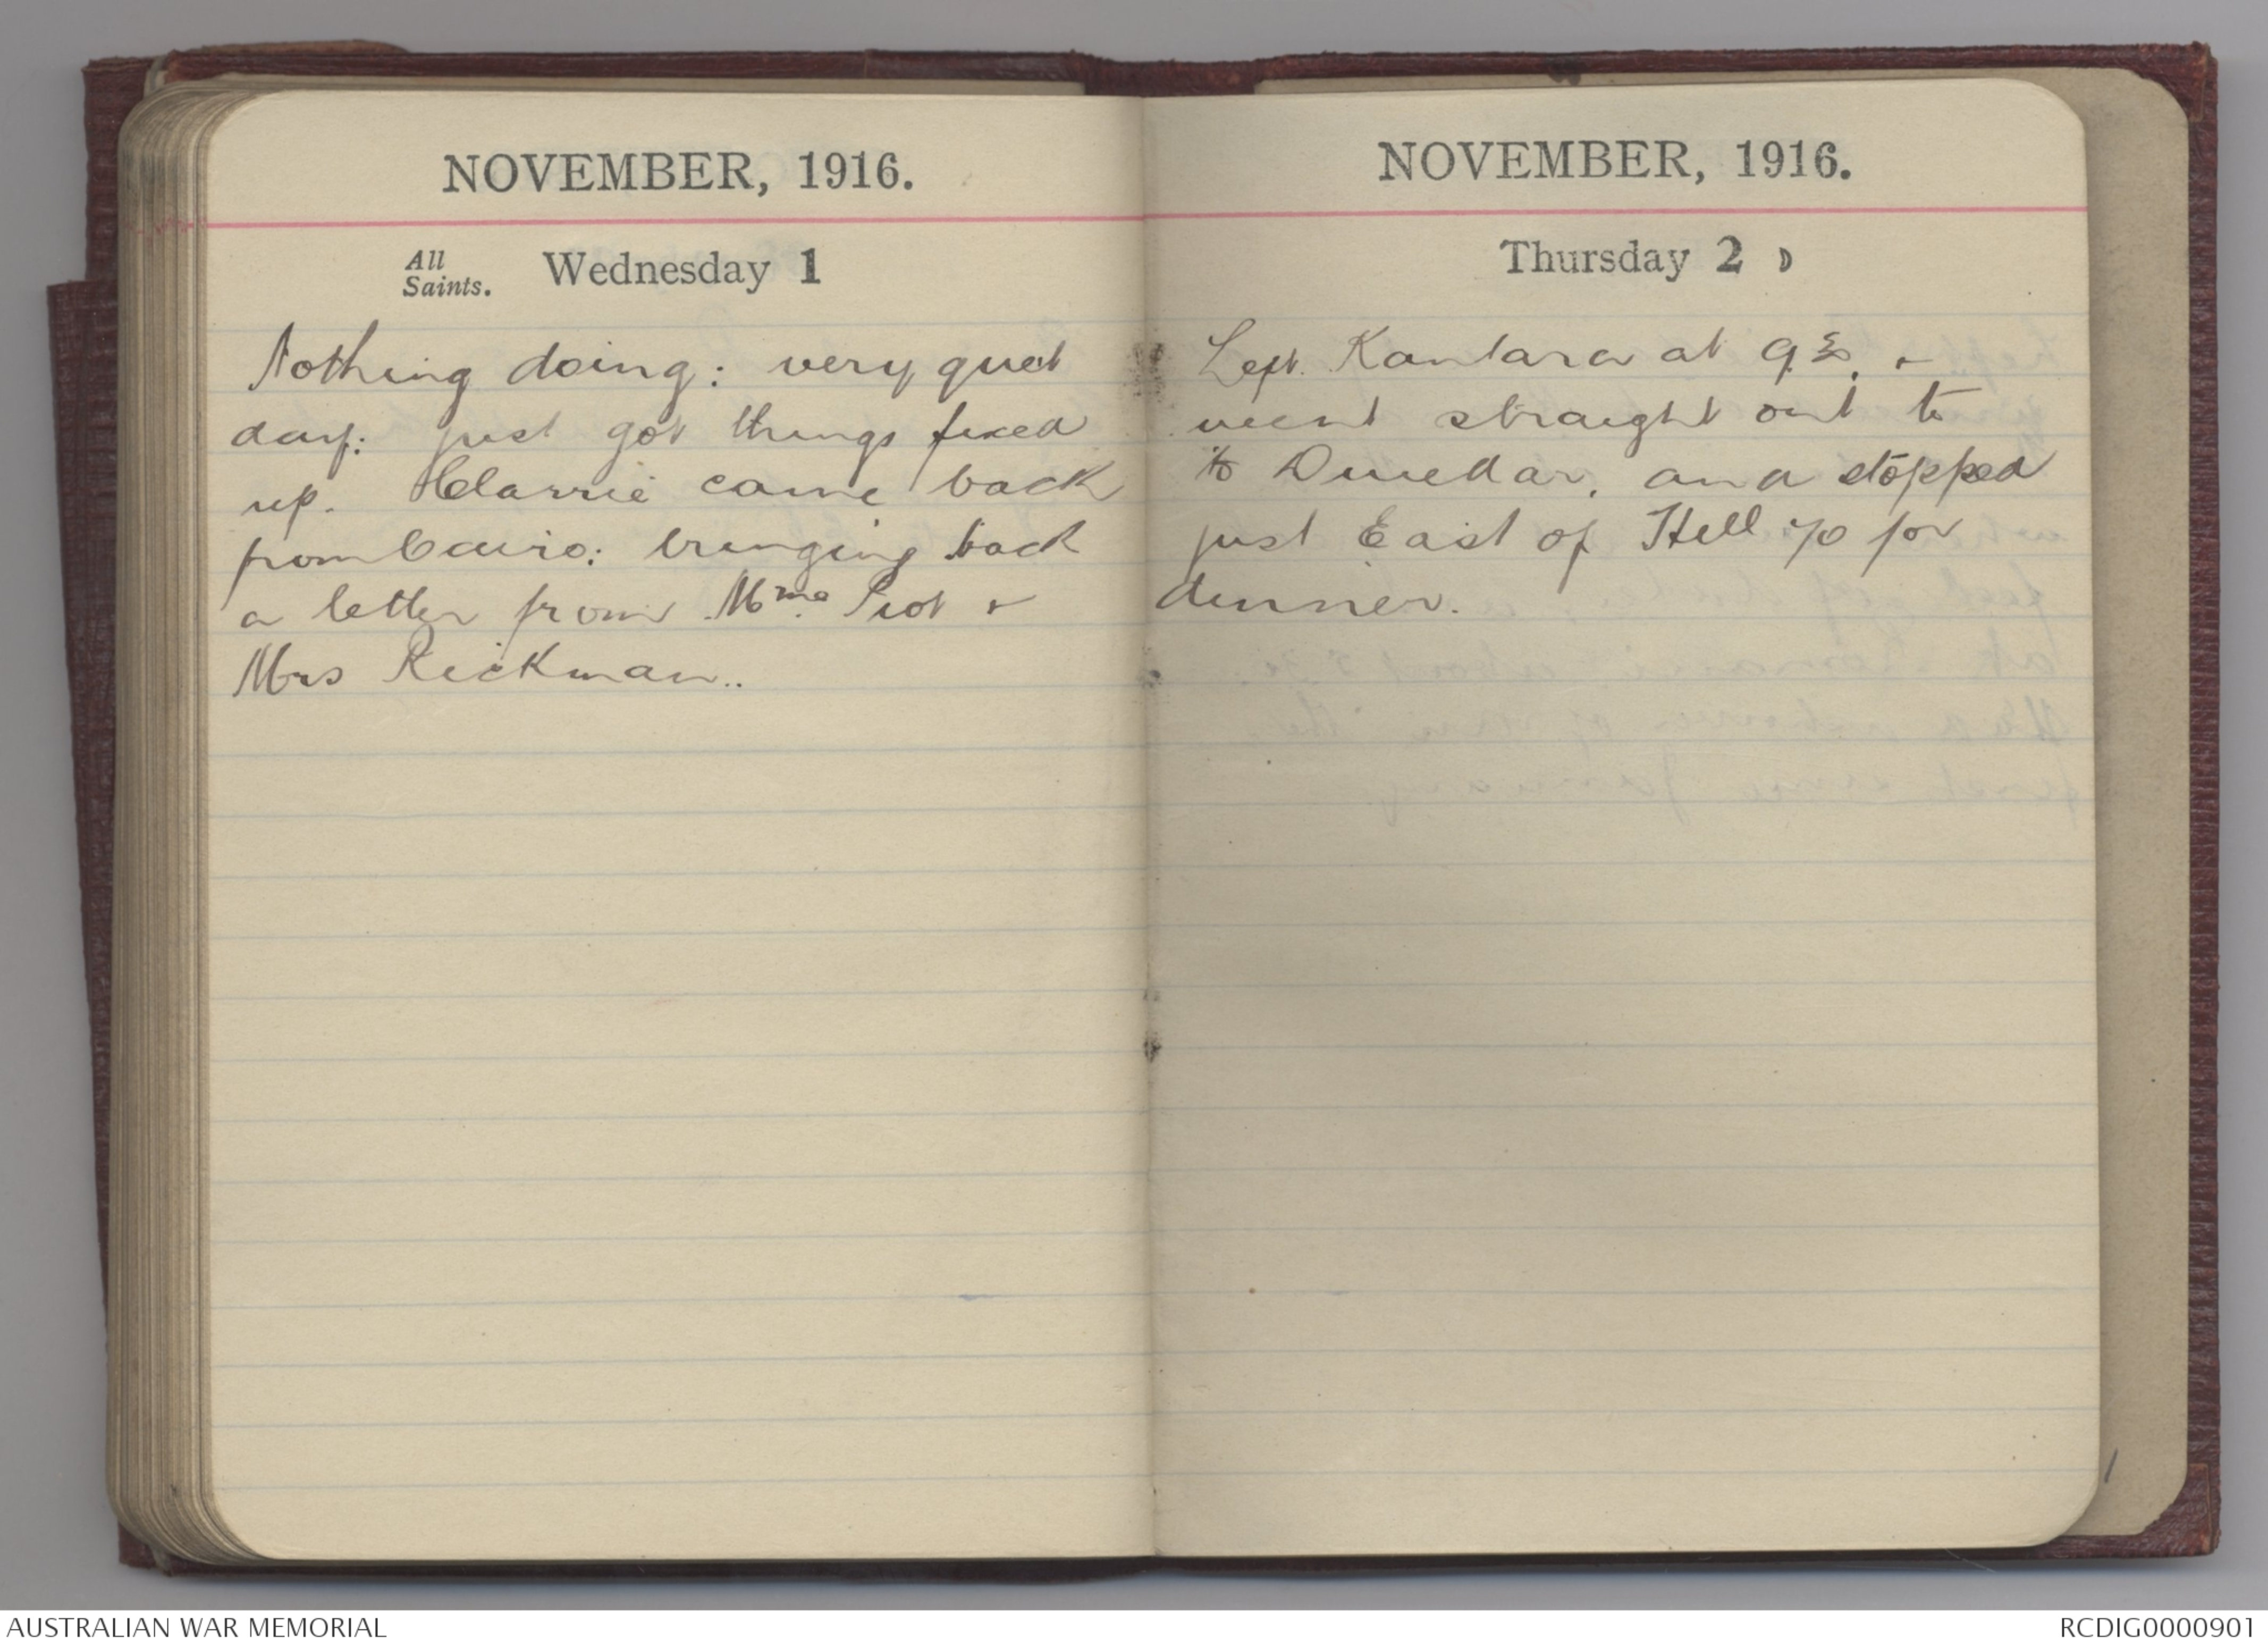 NOVEMBER, 1916.
All Saints. Wednesday 1
Nothing doing: very quiet
day: just got things fixed
up. Clarrie came back
from Cairo: bringing back
a letter from Mme. Piot &
Mrs Rickman..
NOVEMBER, 1916.
Thursday 2
Left Kantara at 9.30. &
went straight out to
to Dueidar, and stopped
just East of Hill 70 for
dinner.
AUSTRALIAN WAR MEMORIAL
RCDIG0000901